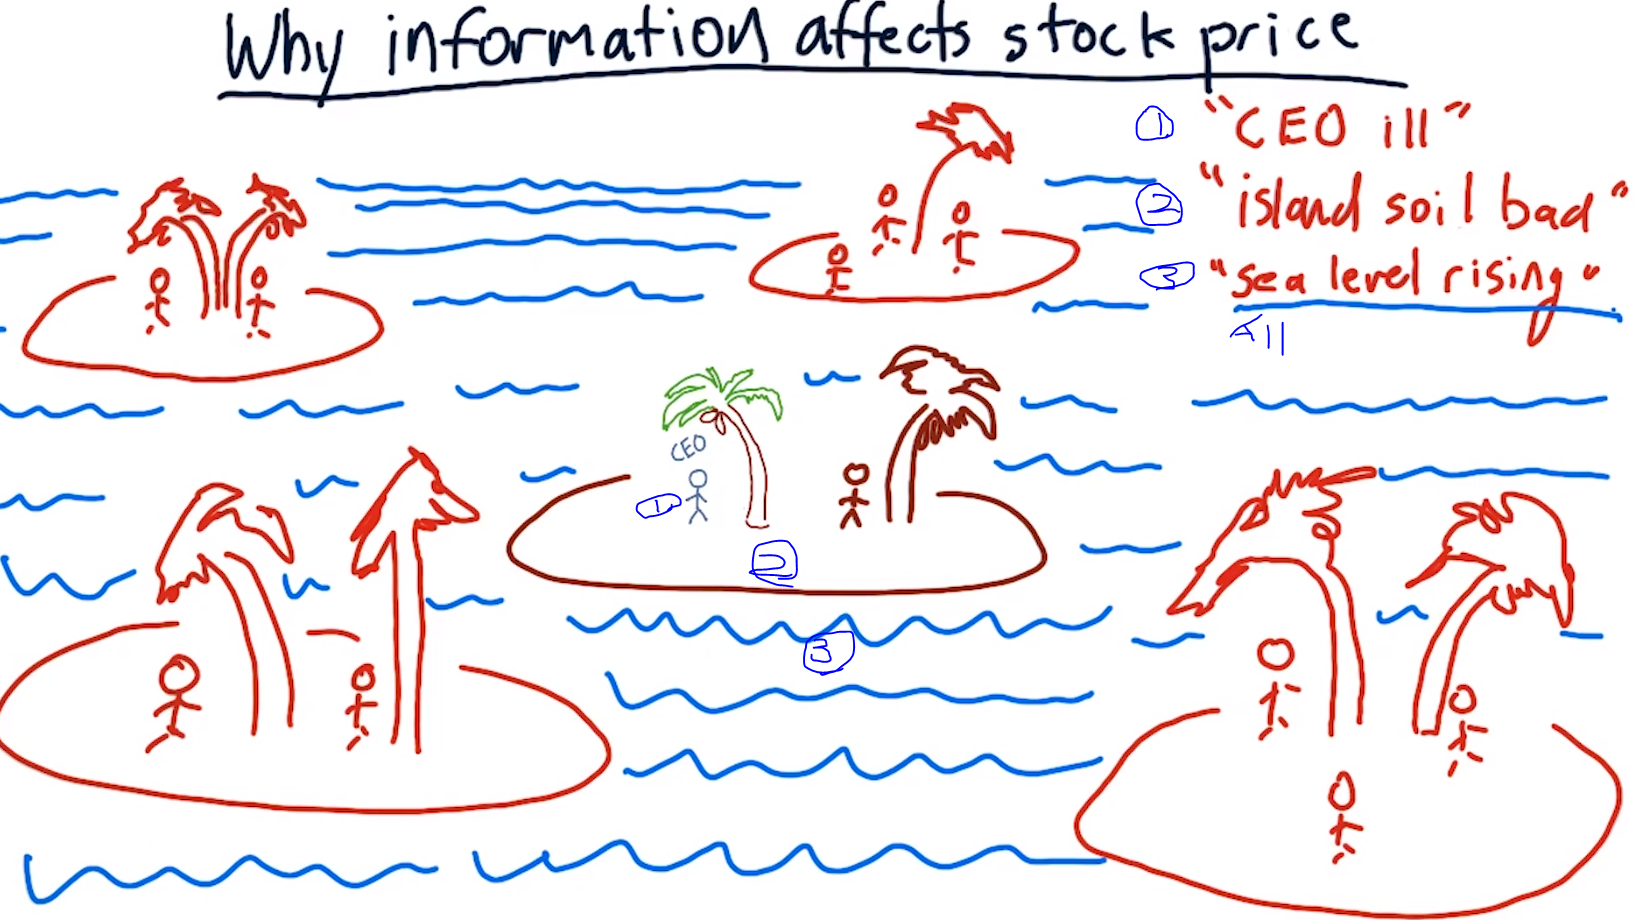 Why information affects stock price
① "CEO ill"
② "island soil bad"
③ "sea level rising"
All
CEO
①
②
③